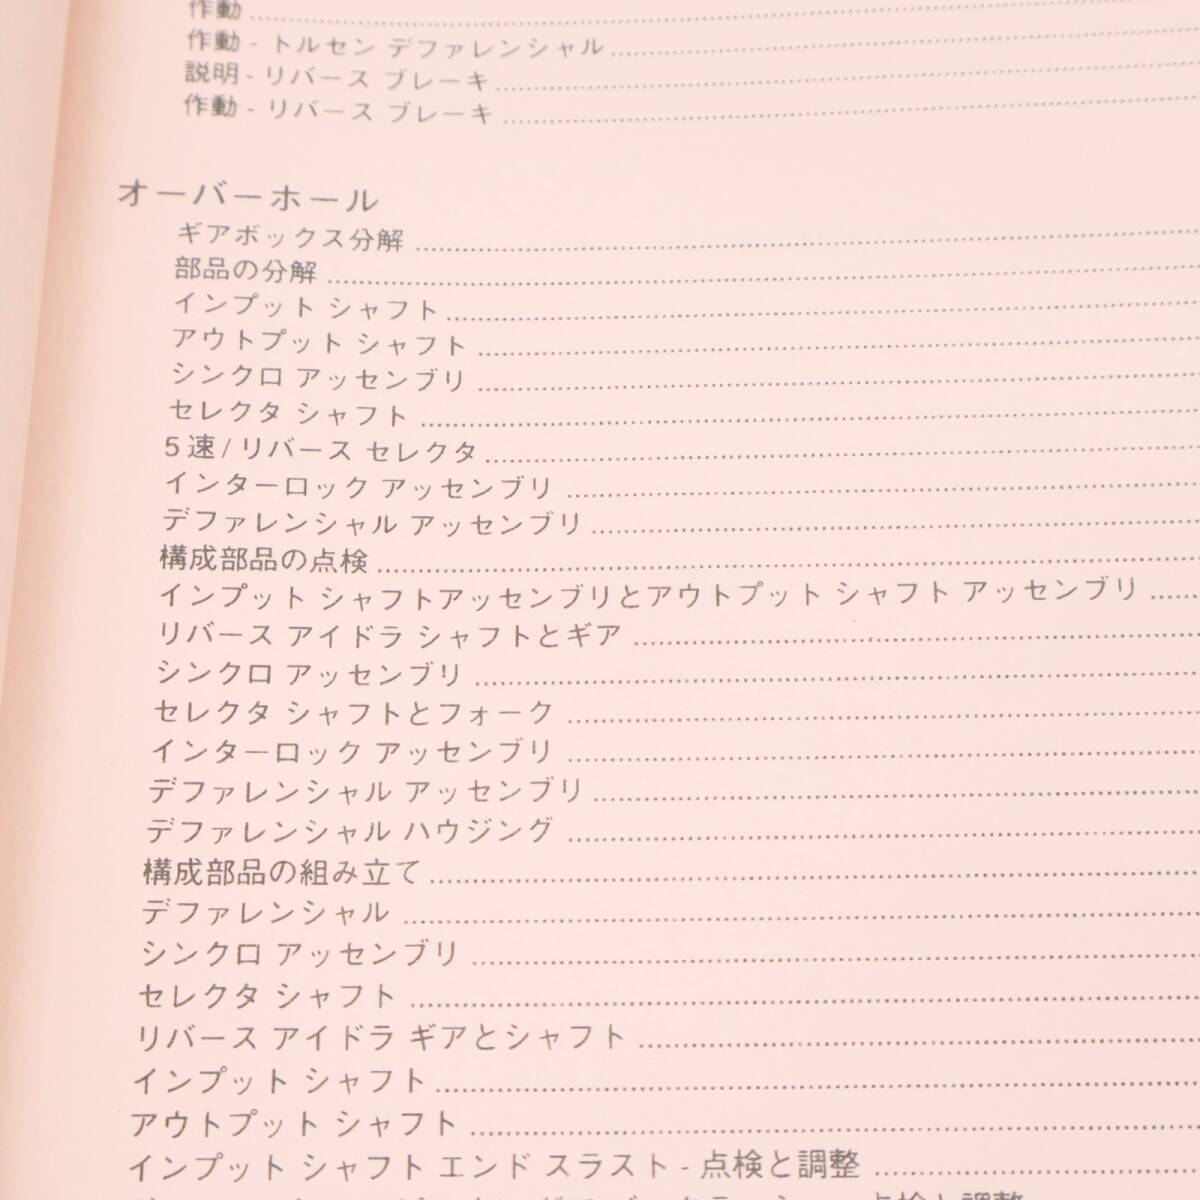 作動
作動 - トルセン デファレンシャル
説明 - リバース ブレーキ
作動 - リバース ブレーキ
オーバーホール
ギアボックス分解
部品の分解
インプット シャフト
アウトプット シャフト
シンクロ アッセンブリ
セレクタ シャフト
5速/リバース セレクタ
インターロック アッセンブリ
デファレンシャル アッセンブリ
構成部品の点検
インプット シャフトアッセンブリとアウトプット シャフト アッセンブリ
リバース アイドラ シャフトとギア
シンクロ アッセンブリ
セレクタ シャフトとフォーク
インターロック アッセンブリ
デファレンシャル アッセンブリ
デファレンシャル ハウジング
構成部品の組み立て
デファレンシャル
シンクロ アッセンブリ
セレクタ シャフト
リバース アイドラ ギアとシャフト
インプット シャフト
アウトプット シャフト
インプット シャフト エンド スラスト - 点検と調整
点検と調整